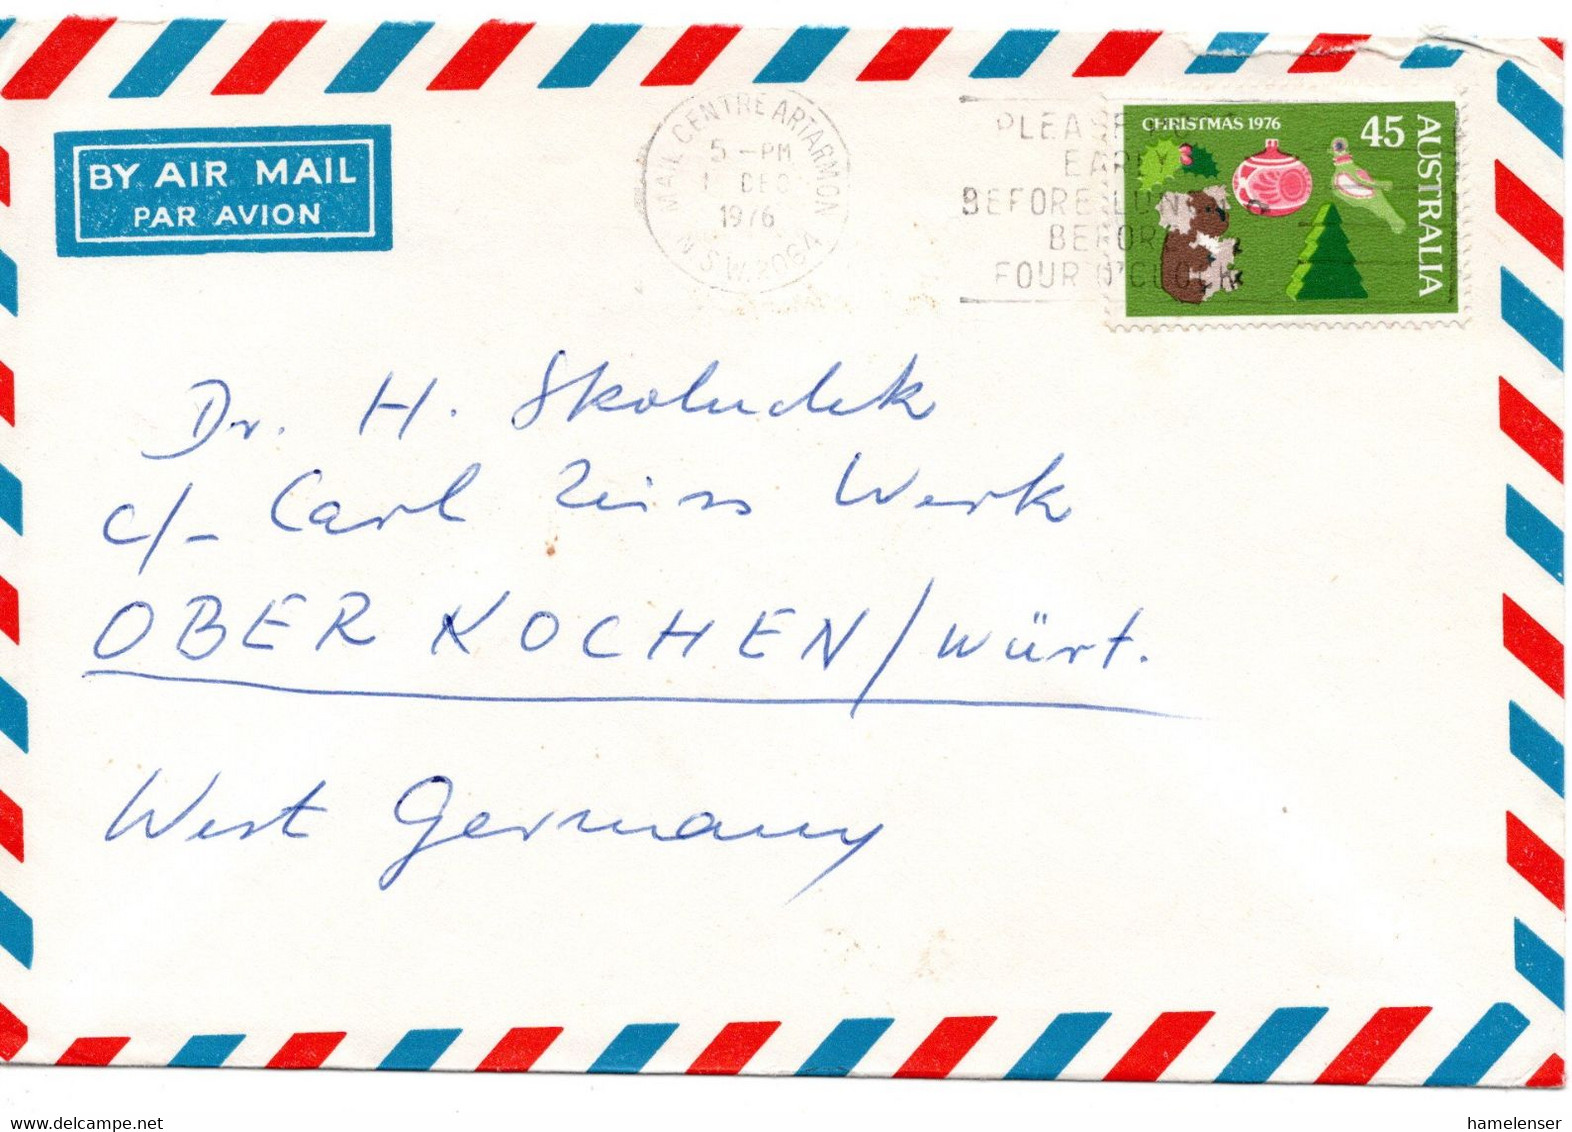 BY AIR MAIL
PAR AVION
MAIL CENTRE ARTARMON
5 - PM
1 DEC
1976
N.S.W. 2064
PLEASE
EARLY
BEFORE LUNCH &
BEFORE
FOUR O'CLOCK
CHRISTMAS 1976
45
AUSTRALIA
Dr. H. Skoludek
c/- Carl Zeiss Werk
OBER KOCHEN/Würt.
West Germany
www.delcampe.net
hamelenser